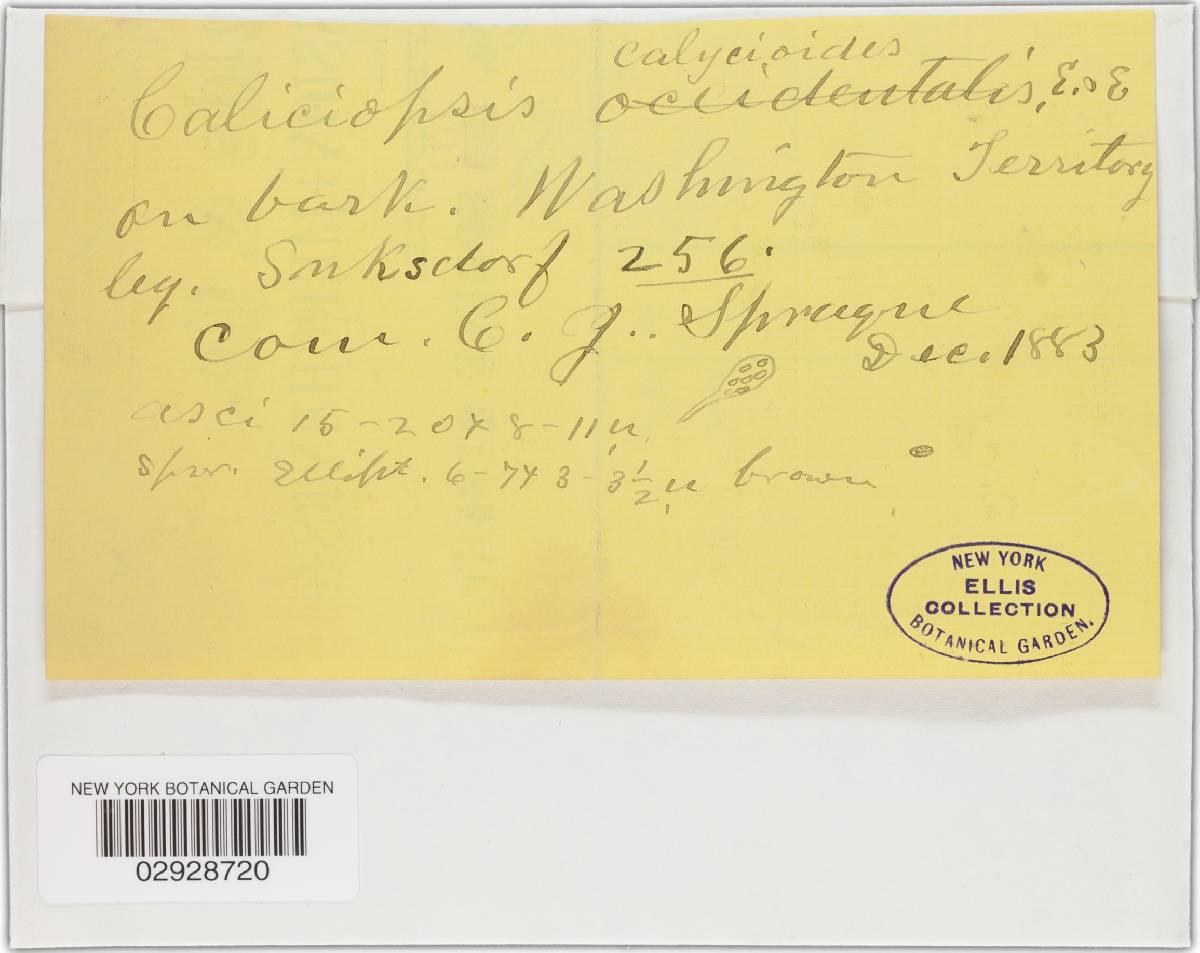 calycioides
Caliciopsis occidentalis, E. & E
on bark. Washington Territory
leg. Suksdorf 256.
com. C. J. Sprague
Dec. 1883
asci 15-20 x 8-11 u.
spor. Ellipt. 6-7 x 3-3 1/2 u brown
NEW YORK
ELLIS
COLLECTION
BOTANICAL GARDEN.
NEW YORK BOTANICAL GARDEN
02928720